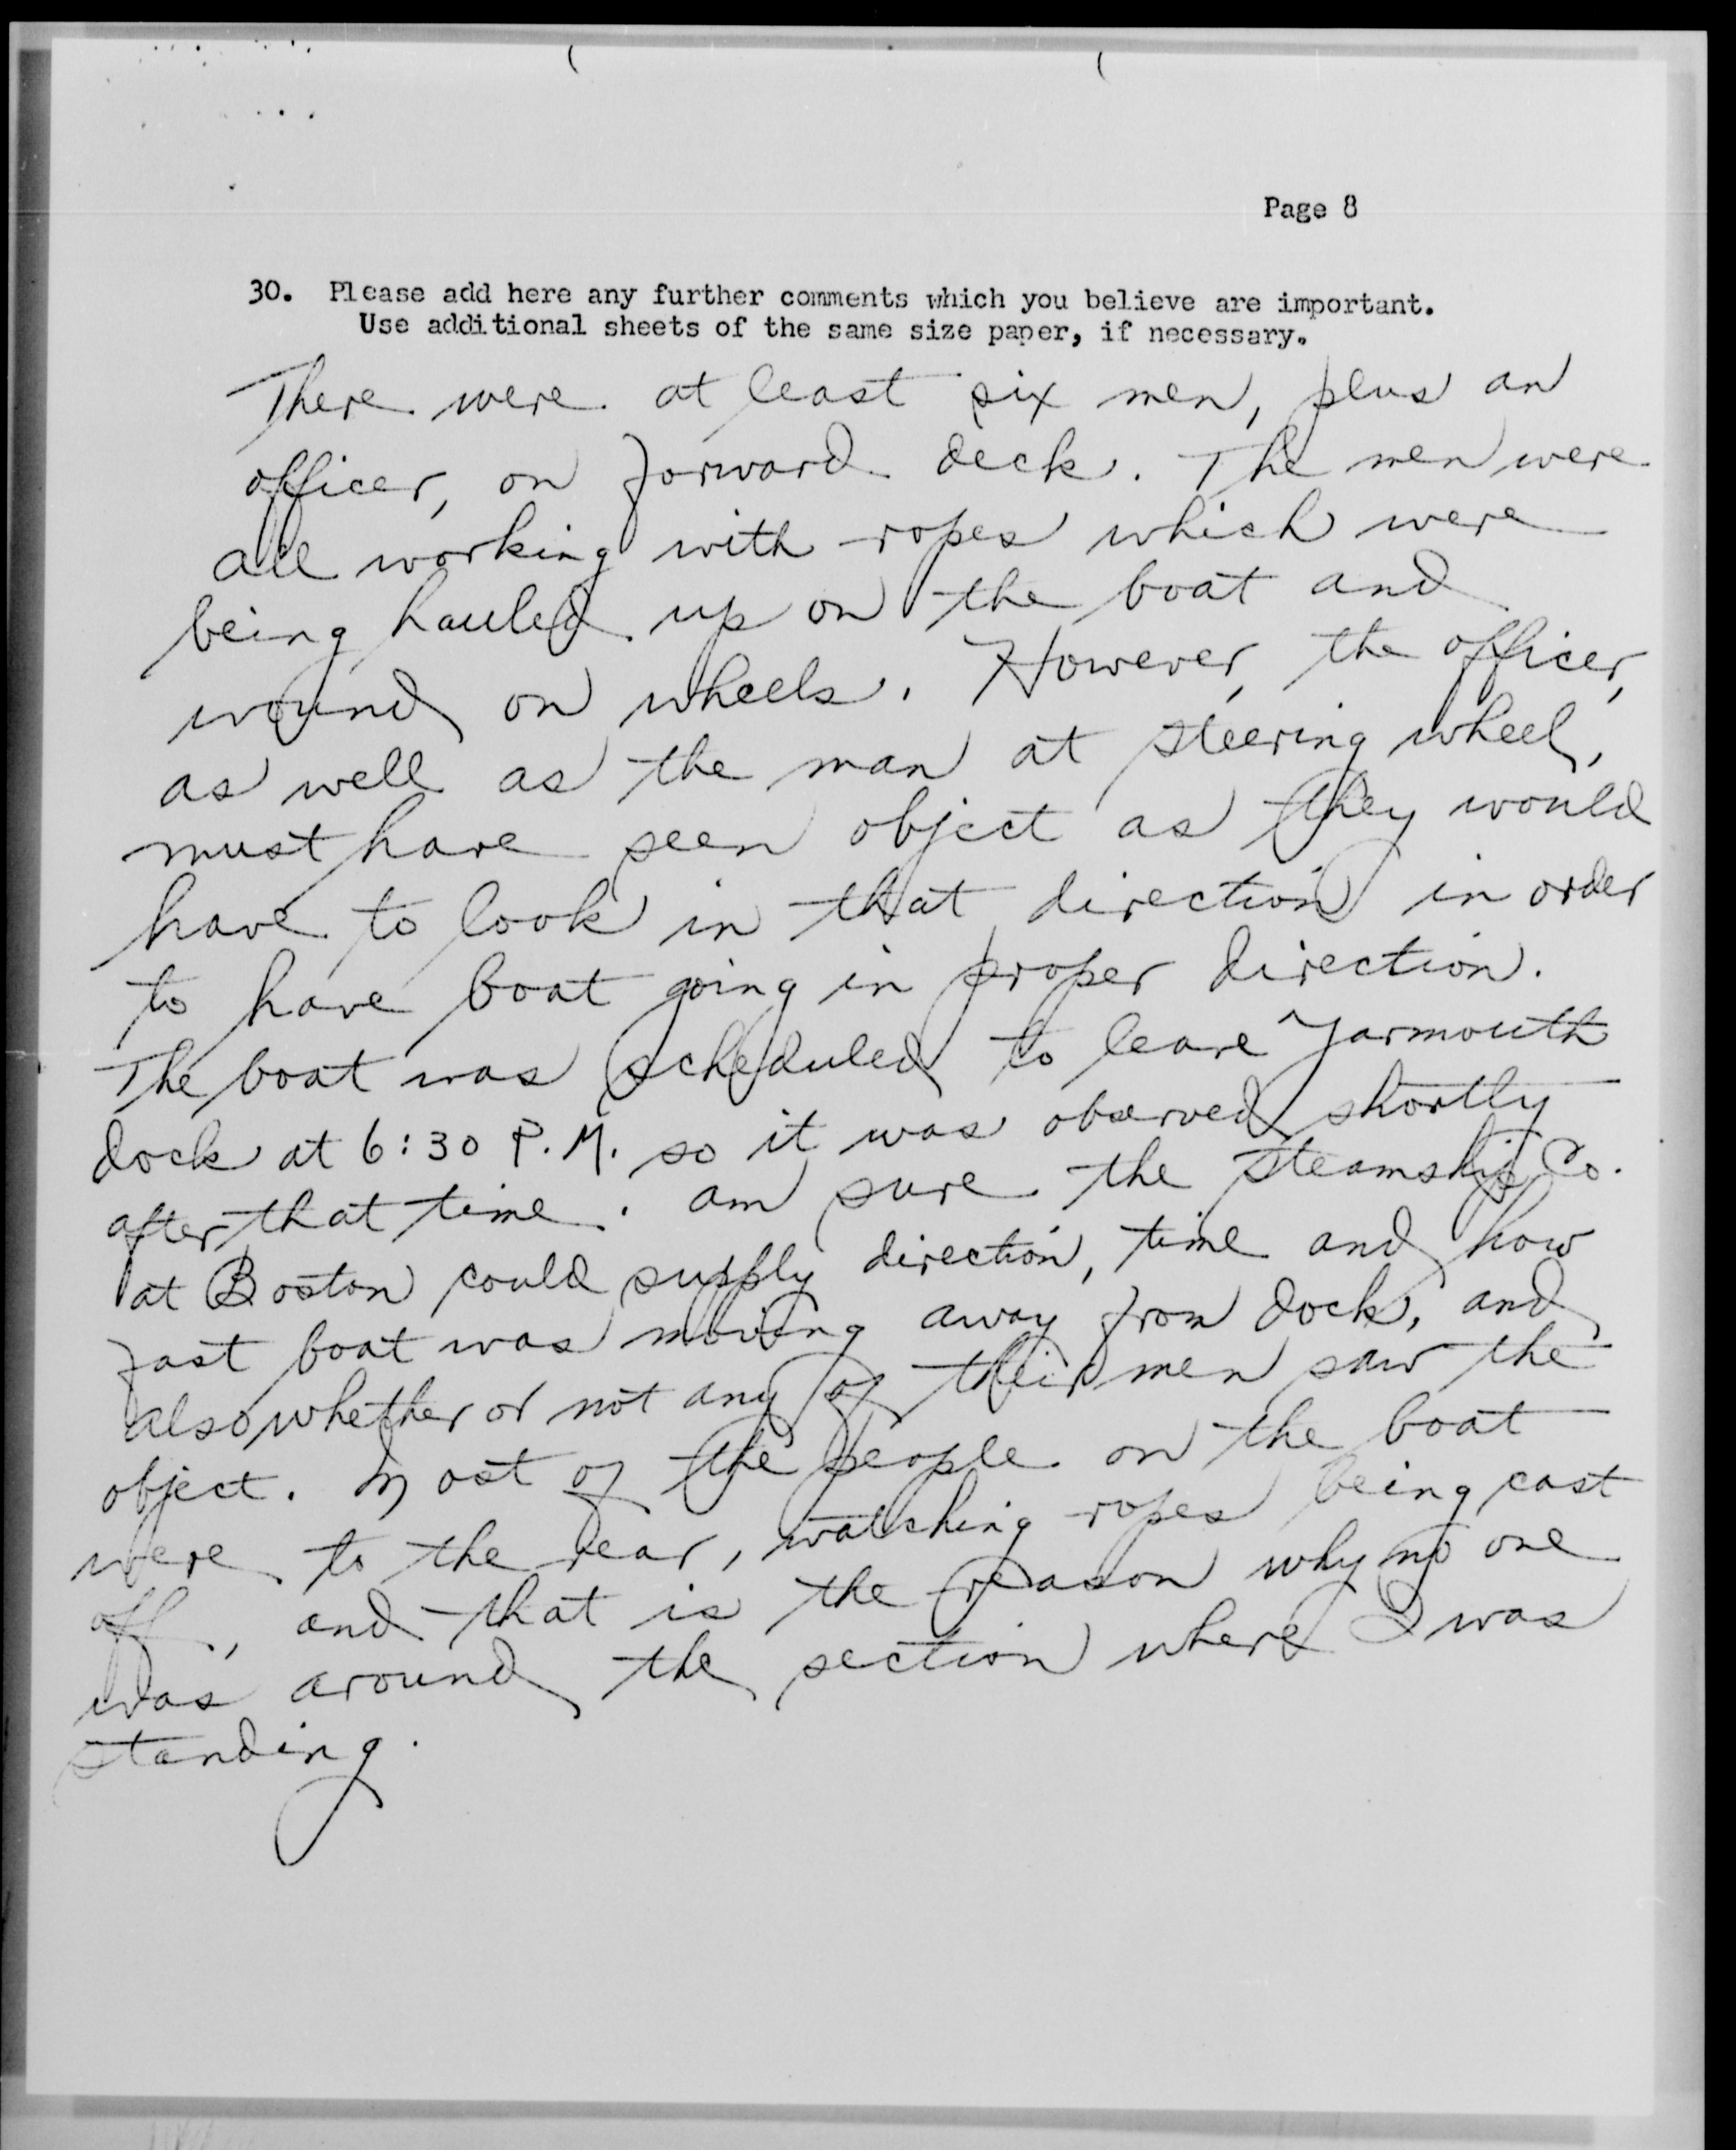 Page 8
30. Please add here any further comments which you believe are important.
Use additional sheets of the same size paper, if necessary.
There were at least six men, plus an
officer, on forward deck. The men were
all working with ropes which were
being hauled up on the boat and
wound on wheels. However, the officer,
as well as the man at steering wheel,
must have seen object as they would
have to look in that direction in order
to have boat going in proper direction.
The boat was scheduled to leave Yarmouth
dock at 6:30 P.M. so it was observed shortly
after that time. am sure the Steamship Co.
at Boston could supply direction, time and how
fast boat was moving away from dock, and
also whether or not any of their men saw the
object. Most of the people on the boat
were to the rear, watching ropes being cast
off, and that is the reason why no one
was around the section where I was
standing.